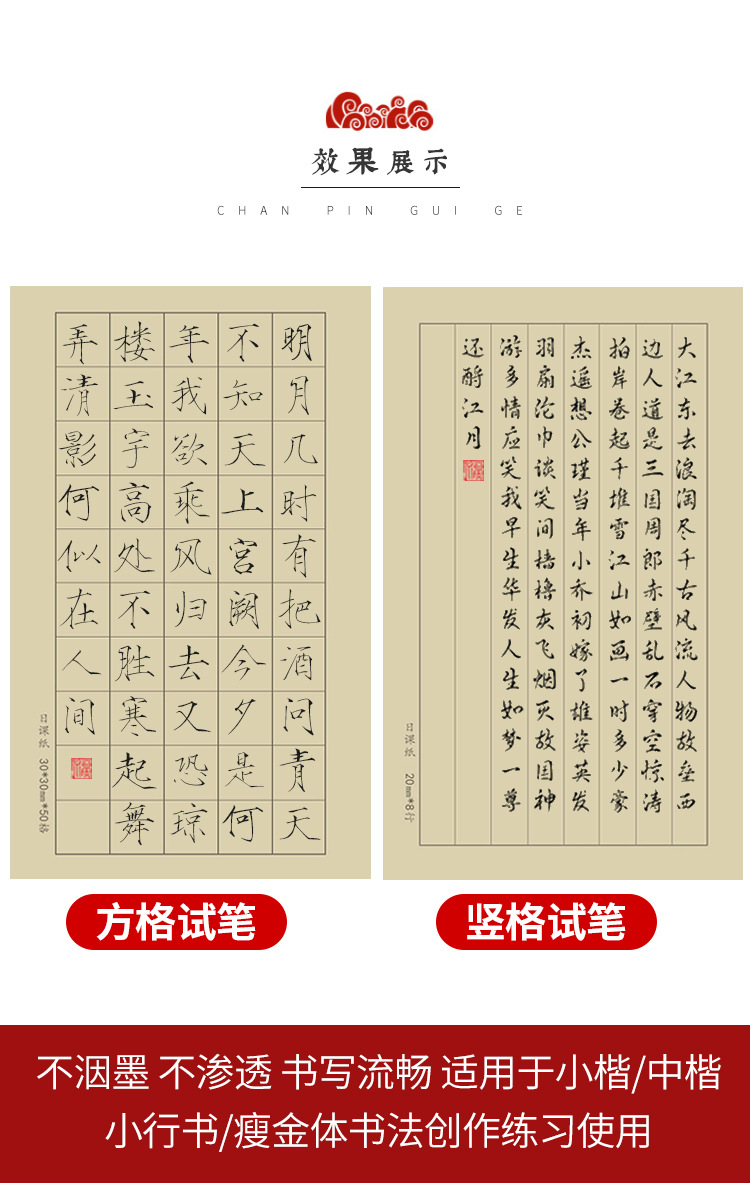 效果展示
CHAN PIN GUI GE
明月几时有把酒问青天
不知天上宫阙今夕是何
年我欲乘风归去又恐琼
楼玉宇高处不胜寒起舞
弄清影何似在人间
日课纸 30*30mm*50格
大江东去浪淘尽千古风流人物故垒西
边人道是三国周郎赤壁乱石穿空惊涛
拍岸卷起千堆雪江山如画一时多少豪
杰遥想公瑾当年小乔初嫁了雄姿英发
羽扇纶巾谈笑间樯橹灰飞烟灭故国神
游多情应笑我早生华发人生如梦一尊
还酹江月
日课纸 20mm*8行
方格试笔
竖格试笔
不洇墨 不渗透 书写流畅 适用于小楷/中楷
小行书/瘦金体书法创作练习使用